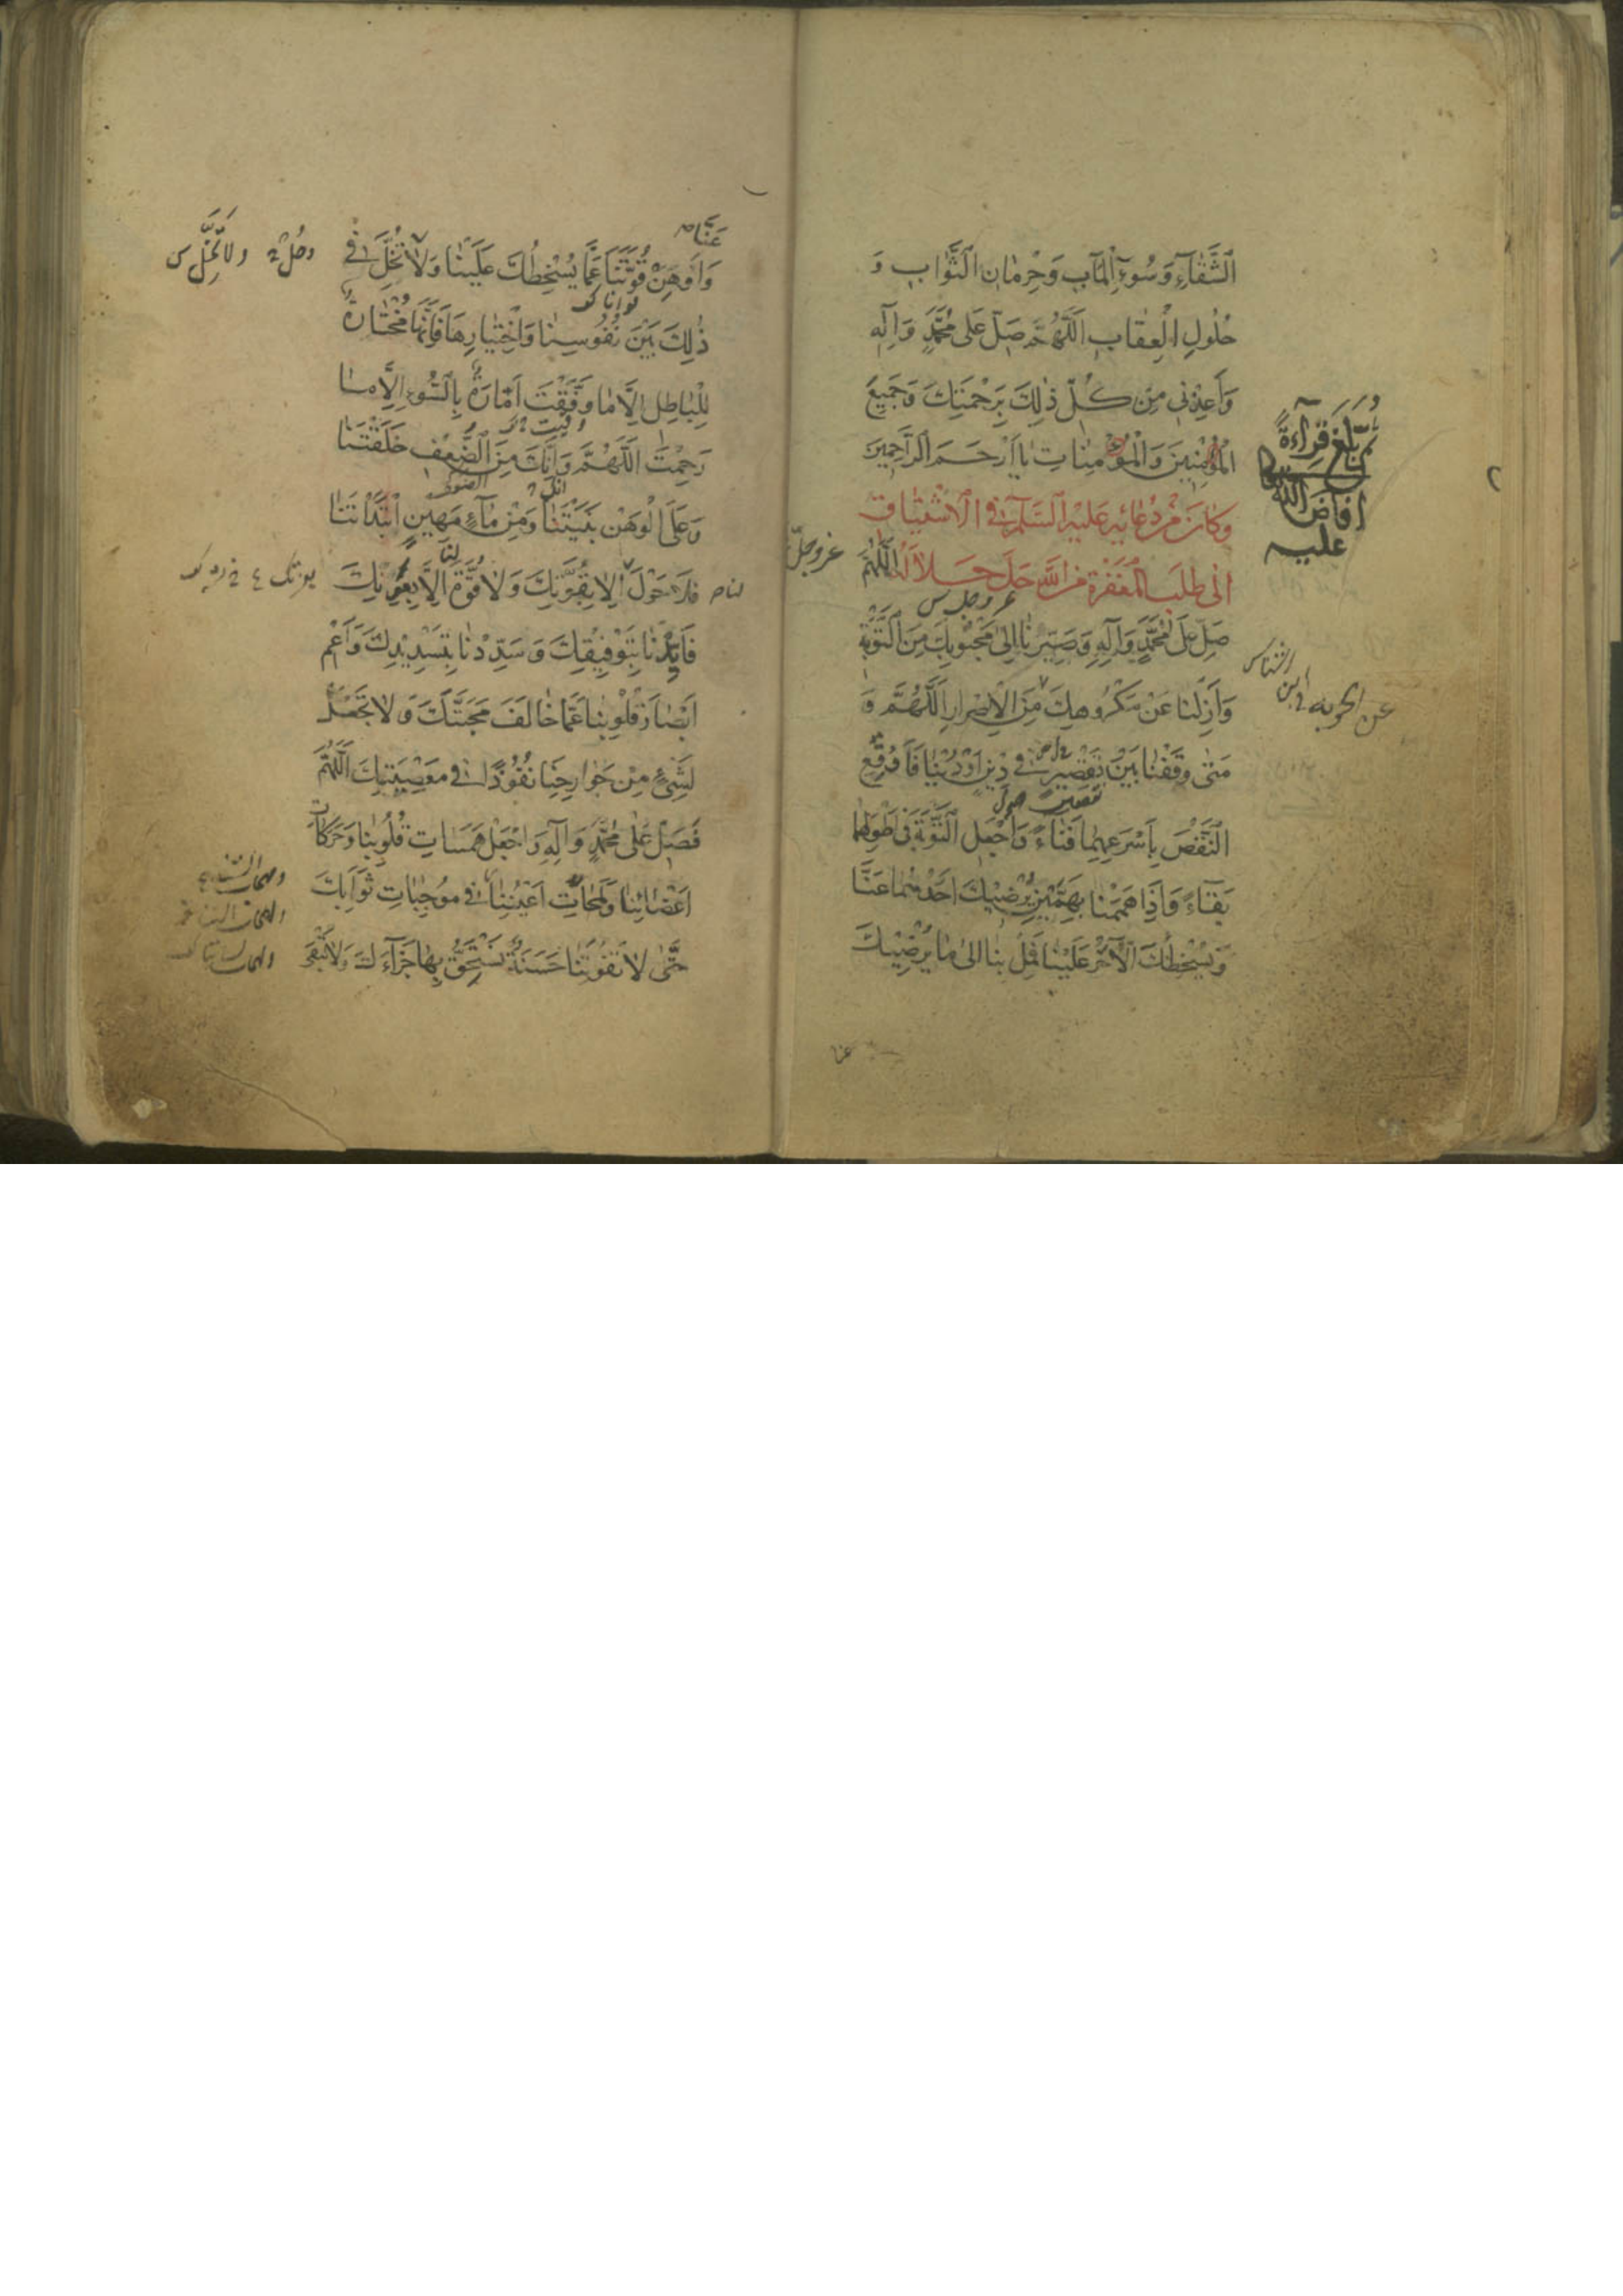 اَلشَّقٰآءِ وَسُوءِ الْمَآبِ وَحِرْمٰانِ الثَّوٰابِ وَ
حُلُولِ الْعِقٰابِ اَللّٰهُمَّ صَلِّ عَلٰى مُحَمَّدٍ وَاٰلِهِ
وَاَعِذْنِي مِنْ كُلِّ ذٰلِكَ بِرَحْمَتِكَ وَجَمِيعَ
الْمُؤْمِنِينَ وَالْمُؤْمِنٰاتِ يٰا اَرْحَمَ الرّٰاحِمِينَ
وَكٰانَ مِنْ دُعٰائِهِ عَلَيْهِ السَّلٰمُ فِي الْاِشْتِيٰاقِ
اِلٰى طَلَبِ الْمَغْفِرَةِ مِنَ اللّٰهِ جَلَّ جَلاٰلُهُ اَللّٰهُمَّ
عز وجلّ
عز وجل س
صَلِّ عَلٰى مُحَمَّدٍ وَآلِهِ وَصَيِّرْنٰا اِلٰى مَحْبُوبِكَ مِنَ التَّوْبَةِ
وَاَزِلْنٰا عَنْ مَكْرُوهِكَ مِنَ الْاِصْرٰارِ اَللّٰهُمَّ وَ
مَتٰى وَقَفْنٰا بَيْنَ نَقْصَيْنِ فِي دِينٍ اَوْ دُنْيٰا فَاَوْقِعِ
النَّقْصَ بِاَسْرَعِهِمٰا فَنٰاءً وَاجْعَلِ التَّوْبَةَ فِي اَطْوَلِهِمٰا
بَقٰآءً وَاِذٰا هَمَمْنٰا بِهَمَّيْنِ يُرْضِيكَ اَحَدُهُمٰا عَنّٰا
وَيُسْخِطُكَ الْآخَرُ عَلَيْنٰا فَمِلْ بِنٰا اِلٰى مٰا يُرْضِيكَ
بلغ قرآءةً
افاض الله
عليه
عَنّٰا
وَاَوْهِنْ قُوَّتَنٰا عَمّٰا يُسْخِطُكَ عَلَيْنٰا وَلاٰ تُخَلِّ فِي
ذٰلِكَ بَيْنَ نُفُوسِنٰا وَاخْتِيٰارِهٰا فَاِنَّهٰا مُخْتٰارَةٌ
لِلْبٰاطِلِ اِلاّٰ مٰا وَفَّقْتَ اَمّٰارَةٌ بِالسُّوءِ اِلاّٰ مٰا
رَحِمْتَ اَللّٰهُمَّ وَاِنَّكَ مِنَ الضَّعْفِ خَلَقْتَنٰا
وَعَلَى الْوَهْنِ بَنَيْتَنٰا وَمِنْ مٰآءٍ مَهِينٍ ابْتَدَاْتَنٰا
فَلاٰ حَوْلَ لَنٰا اِلاّٰ بِقُوَّتِكَ وَلاٰ قُوَّةَ لَنٰا اِلاّٰ بِعَوْنِكَ
فَاَيِّدْنٰا بِتَوْفِيقِكَ وَسَدِّدْنٰا بِتَسْدِيدِكَ وَاَعْمِ
اَبْصٰارَ قُلُوبِنٰا عَمّٰا خٰالَفَ مَحَبَّتَكَ وَلاٰ تَجْعَلْ
لِشَيْءٍ مِنْ جَوٰارِحِنٰا نُفُوذًا فِي مَعْصِيَتِكَ اَللّٰهُمَّ
فَصَلِّ عَلٰى مُحَمَّدٍ وَآلِهِ وَاجْعَلْ هَمَسٰاتِ قُلُوبِنٰا وَحَرَكٰاتِ
اَعْضٰائِنٰا وَلَمَحٰاتِ اَعْيُنِنٰا فِي مُوجِبٰاتِ ثَوٰابِكَ
حَتّٰى لاٰ تَفُوتَنٰا حَسَنَةٌ نَسْتَحِقُّ بِهٰا جَزٰآءَكَ وَلاٰ تَبْقٰى